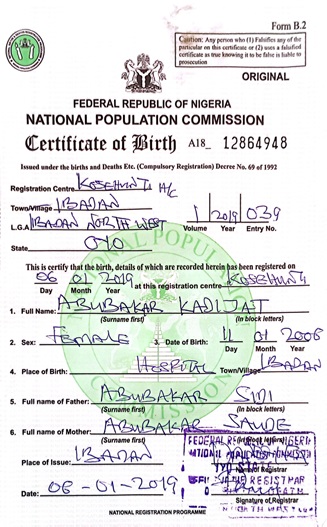 Form B.2
Caution: Any person who (1) Falsifies any of the
particular on this certificate or (2) uses a falsified
certificate as true knowing it to be false is liable to
prosecution
ORIGINAL
FEDERAL REPUBLIC OF NIGERIA
NATIONAL POPULATION COMMISSION
Certificate of Birth A18_ 12864948
Issued under the births and Deaths Etc. (Compulsory Registration) Decree No. 69 of 1992
Registration Centre H/C
Town/Village IBADAN
L.G.A IBADAN NORTH WEST 1 2019 039
Volume Year Entry No.
State OYO
This is certify that the birth, details of which are recorded herein has been registered on
06 01 2019 at this registration centre
Day Month Year
1. Full Name: ABUBAKAR KADIJAT
(Surname first) (In block letters)
2. Sex: Female 3. Date of Birth: 11 01 2006
Day Month Year
4. Place of Birth: Hospital Town/Village IBADAN
5. Full name of Father: ABUBAKAR SIDI
(Surname first) (In block letters)
6. Full name of Mother: ABUBAKAR SAUDE
(Surname first) (In block letters)
Place of Issue: IBADAN
Name of Registrar
Date: 06-01-2019
Signature of Registrar
NATIONAL REGISTRATION PROGRAMME